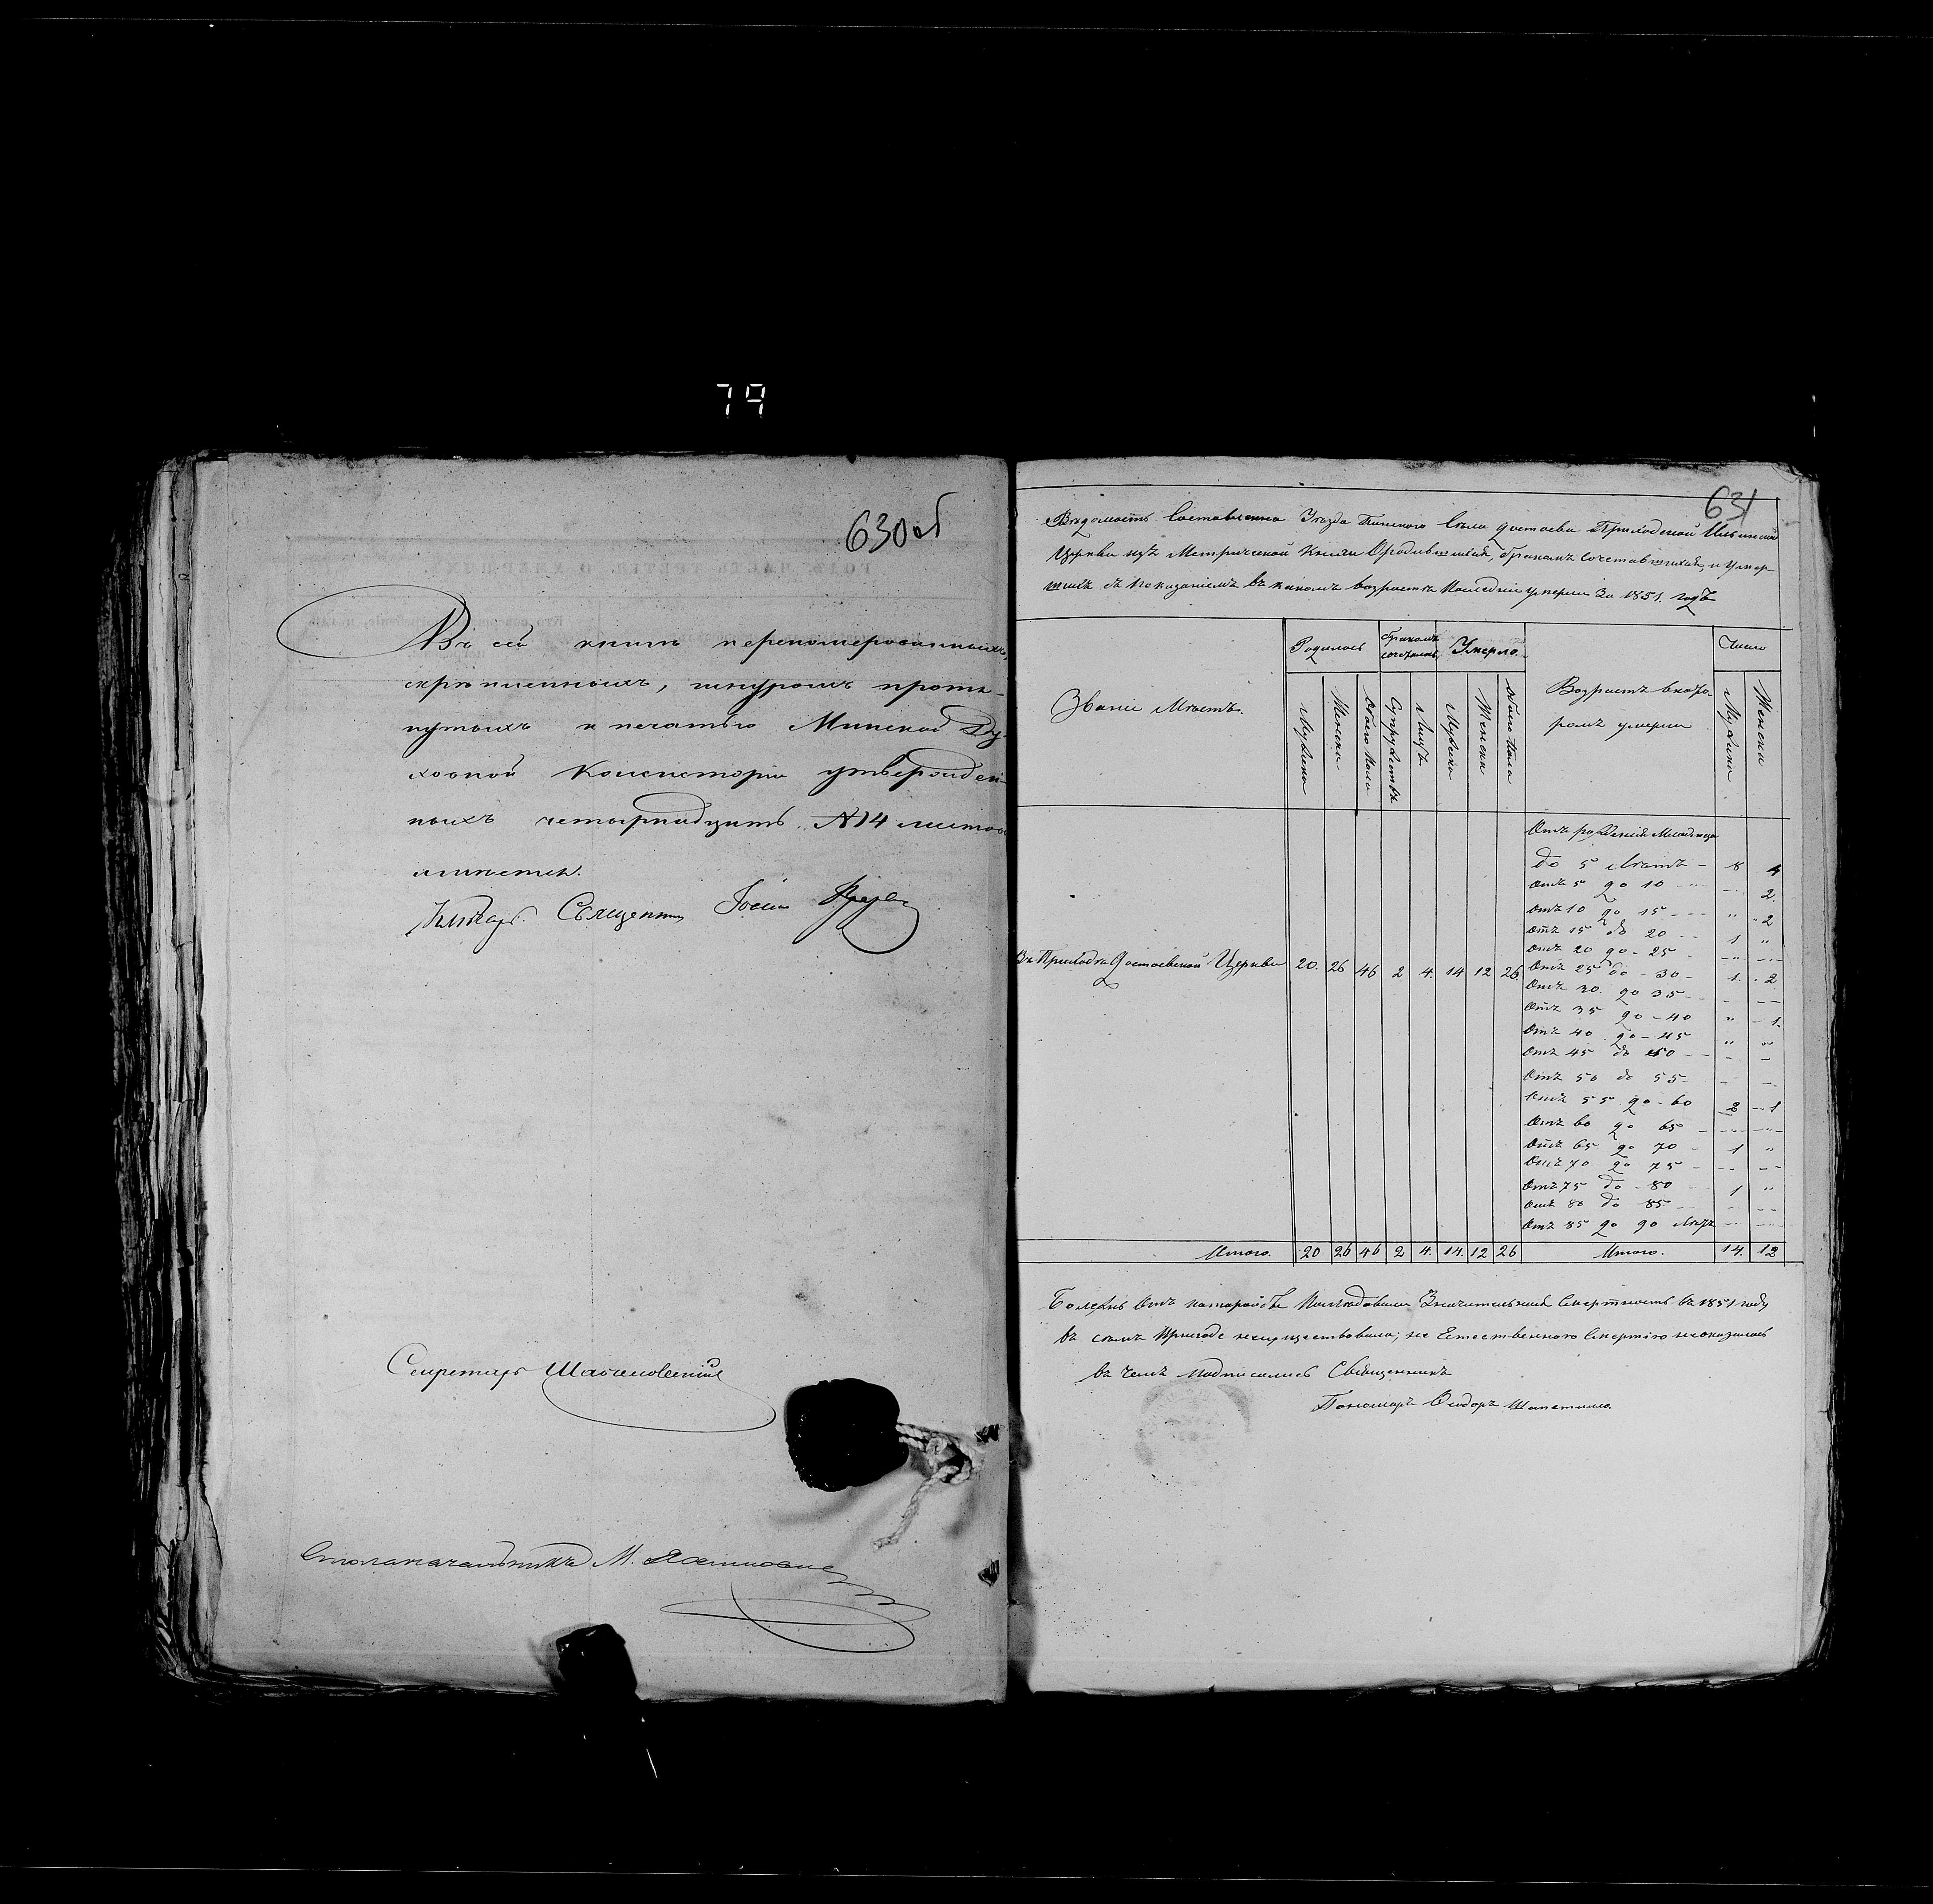 79
630 об
Въ сей книгѣ переномерованныхъ,
скрѣпленныхъ, шнуромъ протя-
нутыхъ и печатью Минской Ду-
ховной Консисторіи утвержден-
ныхъ четырнадцать №14 листовъ
имѣется.
Священникъ
Секретарь
Столоначальникъ М.
631
Вѣдомость Составленна Уѣзда Пинского Села Достоева Приходской Ильинской
Церкви изъ Метрической Книги О родившихся, бракомъ сочетавшихся, и умер-
шихъ съ показаніемъ въ какомъ возрастѣ последніе умерли За 1851. годъ
Званіе Мѣстъ.
Родилось
Мужеска
Женска
Обоего пола
Бракомъ сочеталось
Супружествъ
Лицъ
Умерло.
Мужеска
Женска
Обоего пола
Возрастъ въ кото-
ромъ умерли
Число
Мужеска
Женска
Въ Приходѣ Достоевской Церкви 20. 26 46 2 4. 14 12 26
Отъ рожденія Младенца
до 5 Лѣтъ - 8 4
Отъ 5 до 10 - 2.
Отъ 10 до 15 - - - " " 2
Отъ 15 до 20 - - 1 "
Отъ 20 до - 25 -
Отъ 25 до - 30 - 1. 2
Отъ 30. до 35 -
Отъ 35 до - 40 " - 1.
Отъ 40 до - 45 " "
Отъ 45 до 50 - - - -
Отъ 50 до 55 - - -
Отъ 55 до - 60 2 1
Отъ 60 до 65 -
Отъ 65 до 70 - 1 "
Отъ 70 до 75 -
Отъ 75 до - 80 1 "
Отъ 80 до - 85
Отъ 85 до 90 Лѣтъ
Итого. 20 26 46 2 4. 14. 12 26 Итого. 14. 12
Болѣзнь Отъ которой бъ Послѣдовала Значительная Смертность въ 1851 году
въ семъ Приходе не существовала; не Естественного Смертію не оказалось
въ чемъ подписались Священникъ
Пономарь Ѳеодоръ